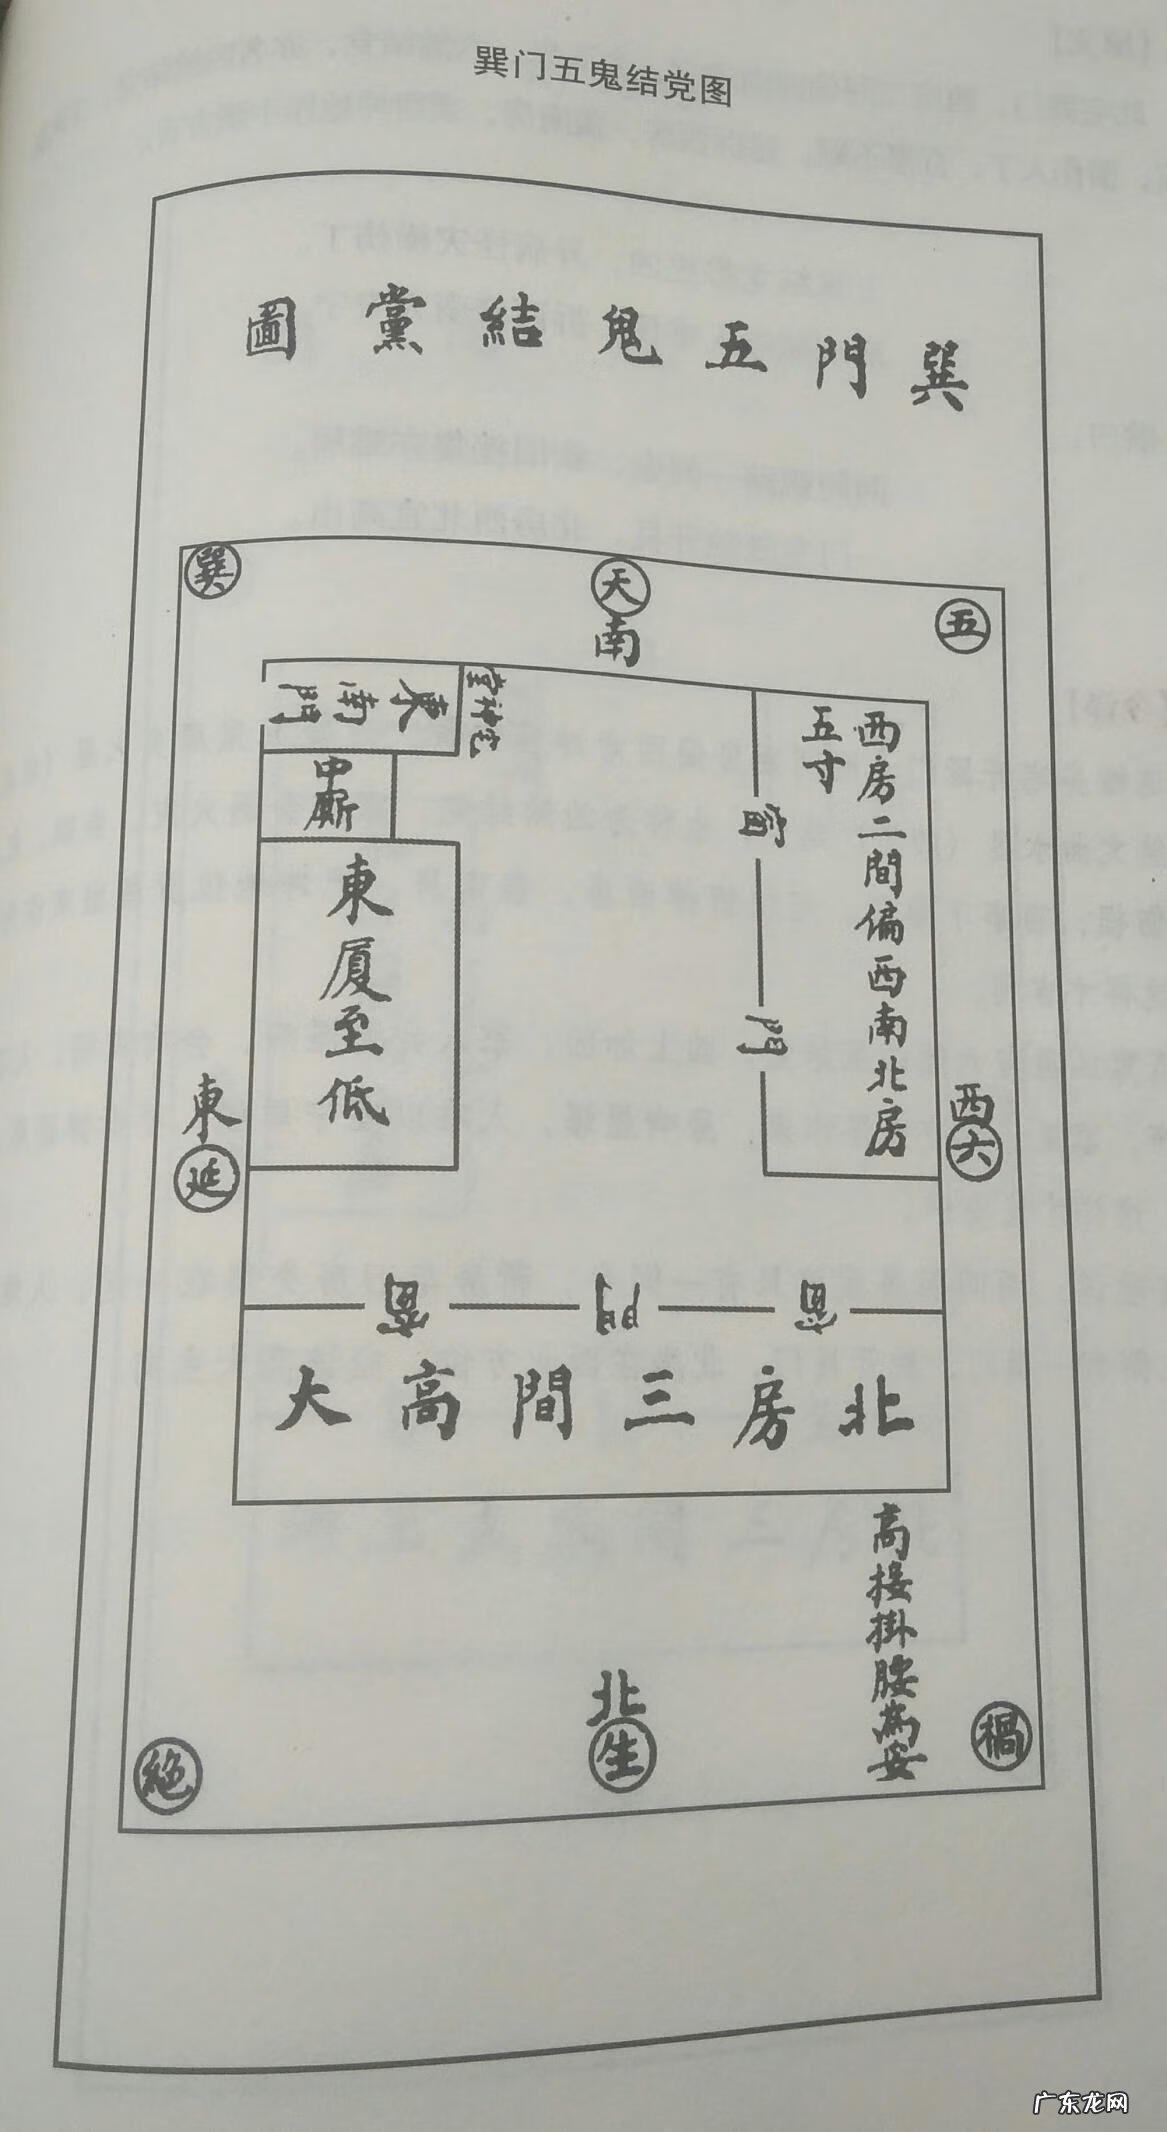 巽门五鬼结党图
巽門五鬼結黨圖
巽
天
南
五
東南門
中厠
東厦至低
東
延
西房二間偏西南北房
五寸
窗
門
西
六
窗
門
窗
北房三間高大
高接掛腰為安
北
生
絕
禍
广东龙网